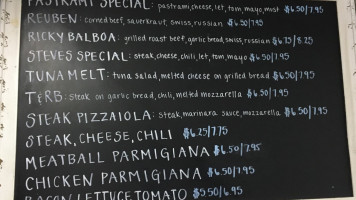 PASTRAMI SPECIAL: pastrami, cheese, let, tom, mayo, must $6.50/7.95
REUBEN: corned beef, sauerkraut, swiss, russian $6.50/7.95
RICKY BALBOA: grilled roast beef, garlic bread, swiss, russian $6.75/8.25
STEVES SPECIAL: steak, cheese, chili, let, tom, mayo $6.50/7.95
TUNA MELT: tuna salad, melted cheese on grilled bread $6.50/7.95
T&RB: steak on garlic bread, chili, melted mozzarella $6.50/7.95
STEAK PIZZAIOLA: steak, marinara sauce, mozzarella $6.50/7.95
STEAK, CHEESE, CHILI $6.25/7.75
MEATBALL PARMIGIANA $6.50/7.95
CHICKEN PARMIGIANA $6.50/7.95
BACON LETTUCE TOMATO $5.50/6.95